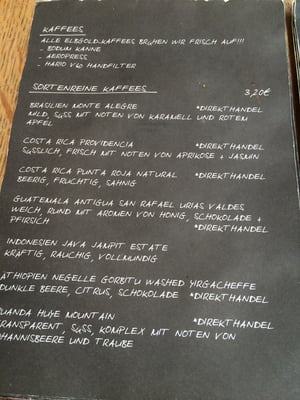 KAFFEES
ALLE ELBGOLD-KAFFEES BRÜHEN WIR FRISCH AUF!!!
- BODUM KANNE
- AEROPRESS
- HARIO V60 HANDFILTER
SORTENREINE KAFFEES 3,20€
BRASILIEN MONTE ALEGRE *DIREKTHANDEL
MILD, SÜSS MIT NOTEN VON KARAMELL UND ROTEM
APFEL
COSTA RICA PROVIDENCIA *DIREKTHANDEL
SÜSSLICH, FRISCH MIT NOTEN VON APRIKOSE + JASMIN
COSTA RICA PUNTA ROJA NATURAL *DIREKTHANDEL
BEERIG, FRUCHTIG, SAHNIG
GUATEMALA ANTIGUA SAN RAFAEL URIAS VALDES
WEICH, RUND MIT AROMEN VON HONIG, SCHOKOLADE +
PFIRSICH
*DIREKTHANDEL
INDONESIEN JAVA JAMPIT ESTATE
KRÄFTIG, RAUCHIG, VOLLMUNDIG
ÄTHIOPIEN NEGELLE GORBITU WASHED YIRGACHEFFE
DUNKLE BEERE, CITRUS, SCHOKOLADE *DIREKTHANDEL
UANDA HUYE MOUNTAIN *DIREKTHANDEL
TRANSPARENT, SÜSS, KOMPLEX MIT NOTEN VON
HANNISBEERE UND TRAUBE